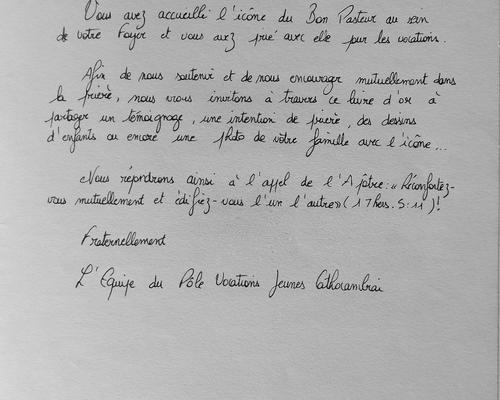 Vous avez accueilli l'icône du Bon Pasteur au sein
de votre foyer et vous avez prié avec elle pour les vocations.
Afin de nous soutenir et de nous encourager mutuellement dans
la prière, nous vous invitons à travers ce livre d'or à
partager un témoignage, une intention de prière, des dessins
d'enfants ou encore une photo de votre famille avec l'icône...
Nous répondrons ainsi à l'appel de l'Apôtre : « Réconfortez-
vous mutuellement et édifiez-vous l'un l'autre » (1 Thess. 5:11) !
Fraternellement
L'Equipe du Pôle Vocations Jeunes Cathocambrai